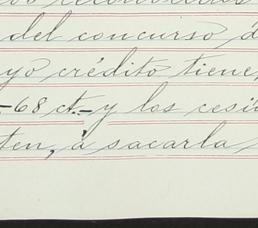 del concurso d
yo crédito tiene,
-68 ct.- y los cesi
ten, á sacarla